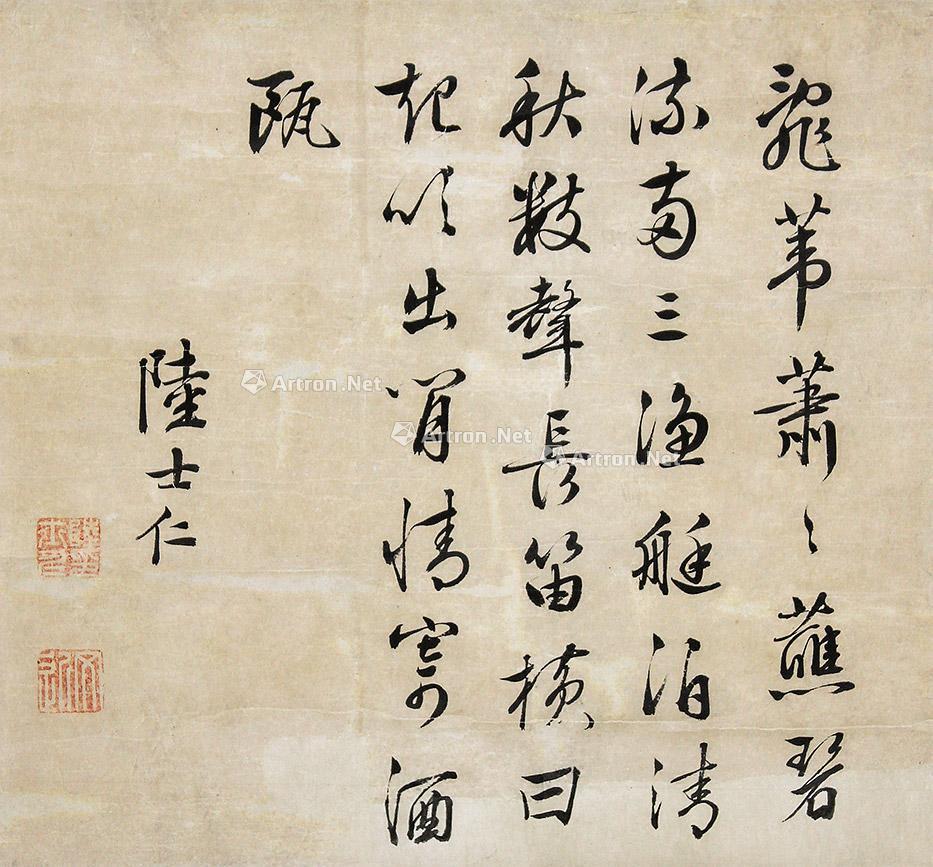 葦蕭〻蘸碧
流兩三漁艇泊清
秋數聲長笛橫日
起吹出閒情寄酒
甌
陸士仁
Artron.Net
Artron.Net
Artron.Net